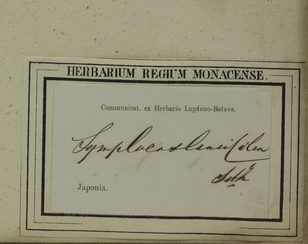 HERBARIUM REGIUM MONACENSE.
Communicat. ex Herbario Lugduno-Batavo.
Symplocos
Japonia.